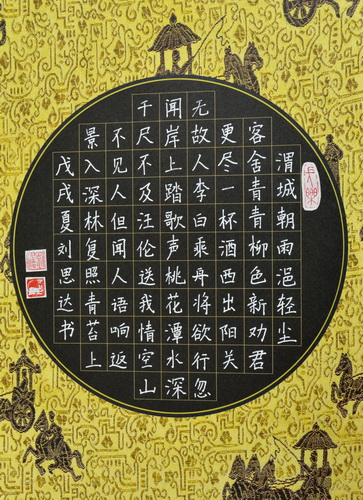 渭城朝雨浥轻尘
客舍青青柳色新劝君
更尽一杯酒西出阳关
无故人李白乘舟将欲行忽
闻岸上踏歌声桃花潭水深
千尺不及汪伦送我情空山
不见人但闻人语响返
景入深林复照青苔上
戊戌夏刘思达书